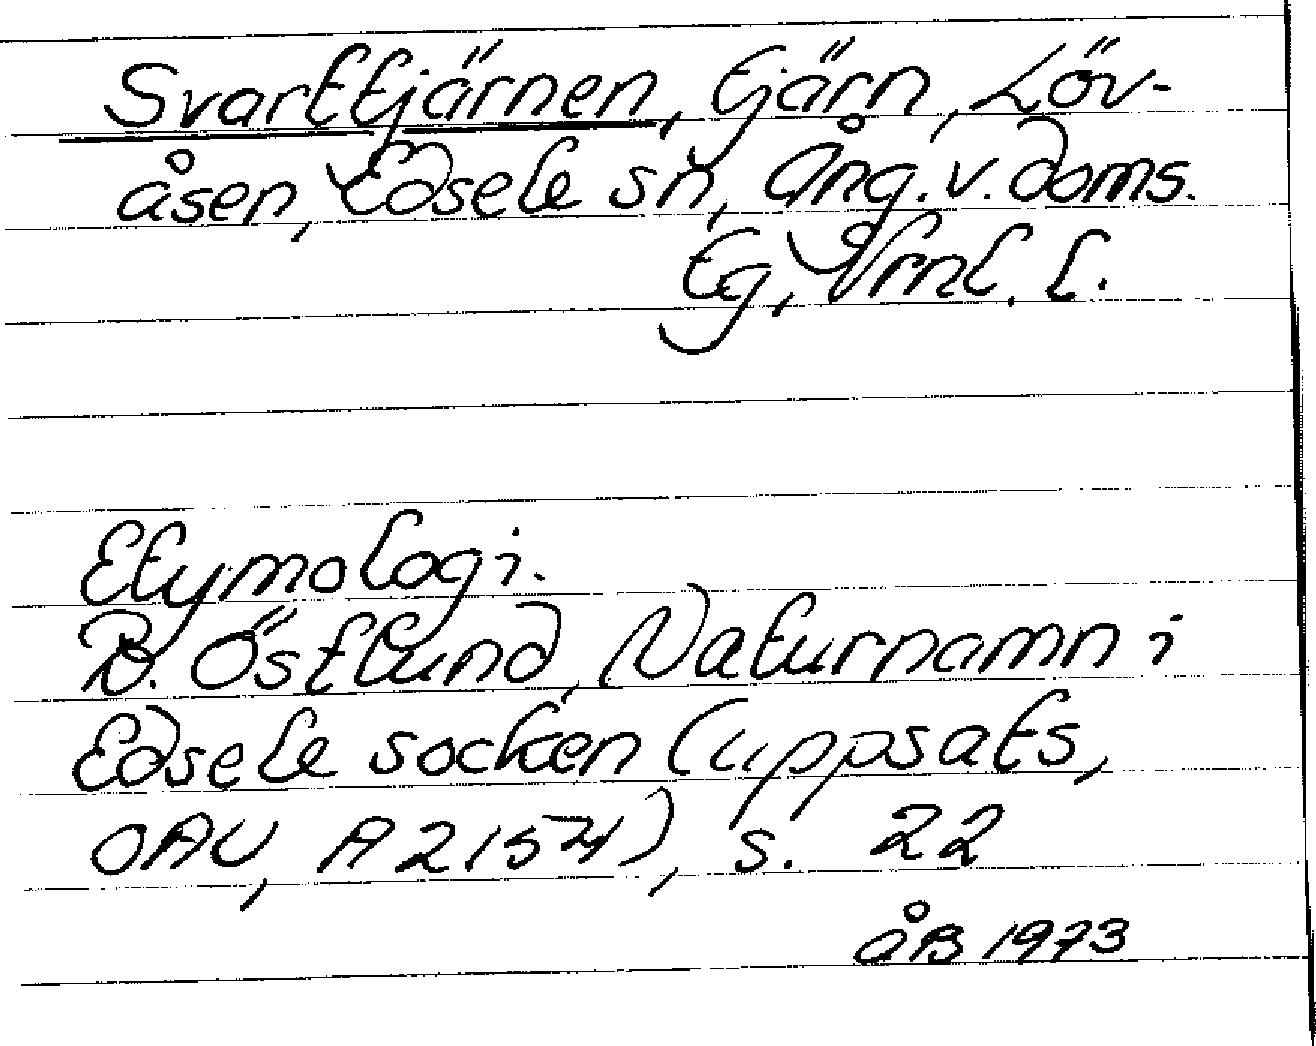 Svarttjärnen, tjärn, Löv-
åsen, Edsele sn, Ång. v. doms.
tg, Vrnl. l.
Etymologi.
B. Östlund, Naturnamn i
Edsele socken (uppsats,
OAU, A 2154), s. 22
ÅB 1973